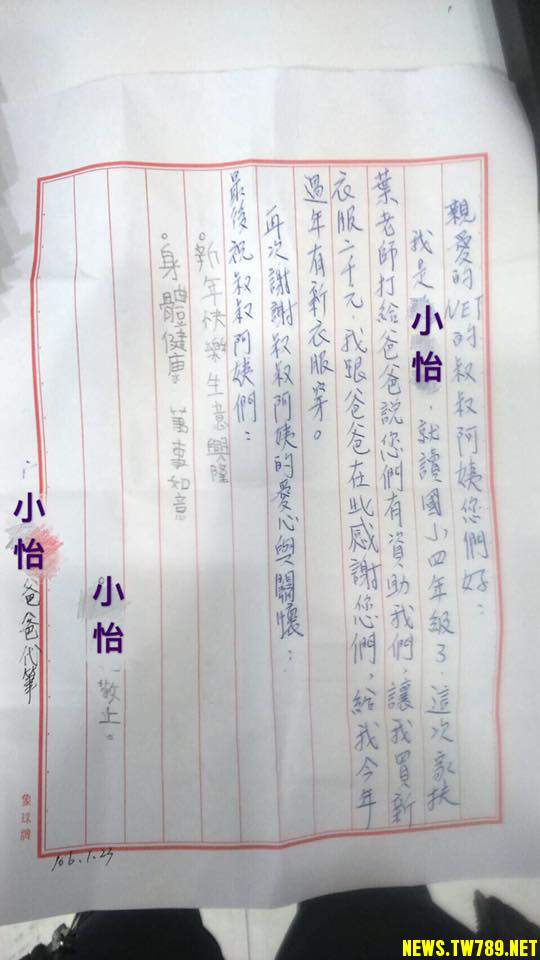 親愛的NET的叔叔阿姨您們好：
我是小怡，就讀國小四年級了，這次家扶
葉老師打給爸爸說您們有資助我們，讓我買新
衣服二千元，我跟爸爸在此感謝您們，給我今年
過年有新衣服穿。
再次謝謝叔叔阿姨的愛心與關懷：
最後祝叔叔阿姨們：
。新年快樂生意興隆
。身體健康 萬事如意
小怡 敬上。
小怡爸爸代筆
象球牌
106.1.23
NEWS.TW789.NET